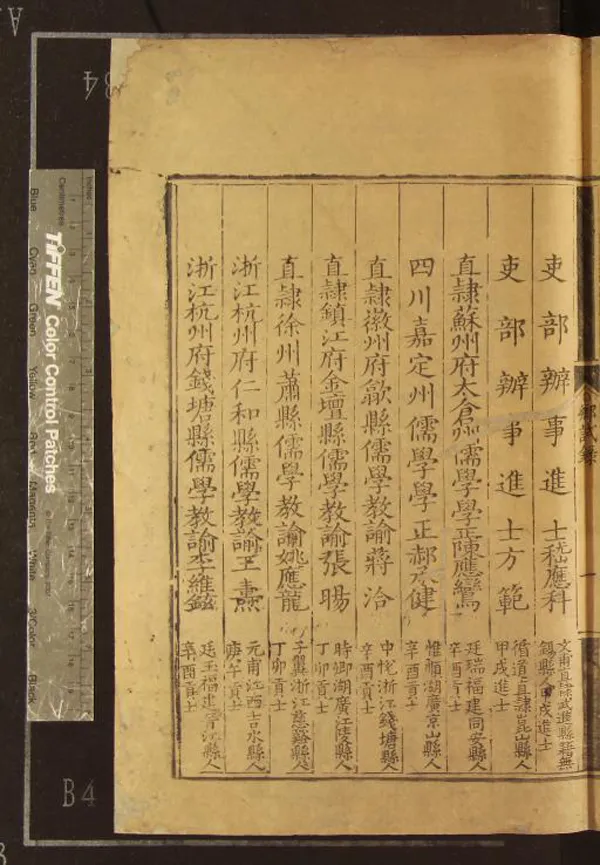 吏部辦事進士嵇應科
文甫直隸武進縣籍無
錫縣人甲戌進士
吏部辦事進士方範
循道直隸崑山縣人
甲戌進士
直隸蘇州府太倉州儒學學正陳應鸞
廷瑞福建同安縣人
辛酉貢士
四川嘉定州儒學學正郝承健
惟順湖廣京山縣人
辛酉貢士
直隸徽州府歙縣儒學教諭蔣洽
中悅浙江錢塘縣人
辛酉貢士
直隸鎮江府金壇縣儒學教諭張暘
時卿湖廣江陵縣人
丁卯貢士
直隸徐州蕭縣儒學教諭姚應龍
子翼浙江慈谿縣人
丁卯貢士
浙江杭州府仁和縣儒學教諭王燾
元甫江西吉水縣人
庚午貢士
浙江杭州府錢塘縣儒學教諭李維
廷玉福建晉江縣人
辛酉貢士
鄉試錄
一
B4
TIFFEN Color Control Patches
Centimetres
Inches
Blue
Cyan
Green
Yellow
Red
Magenta
White
3/Color
Black